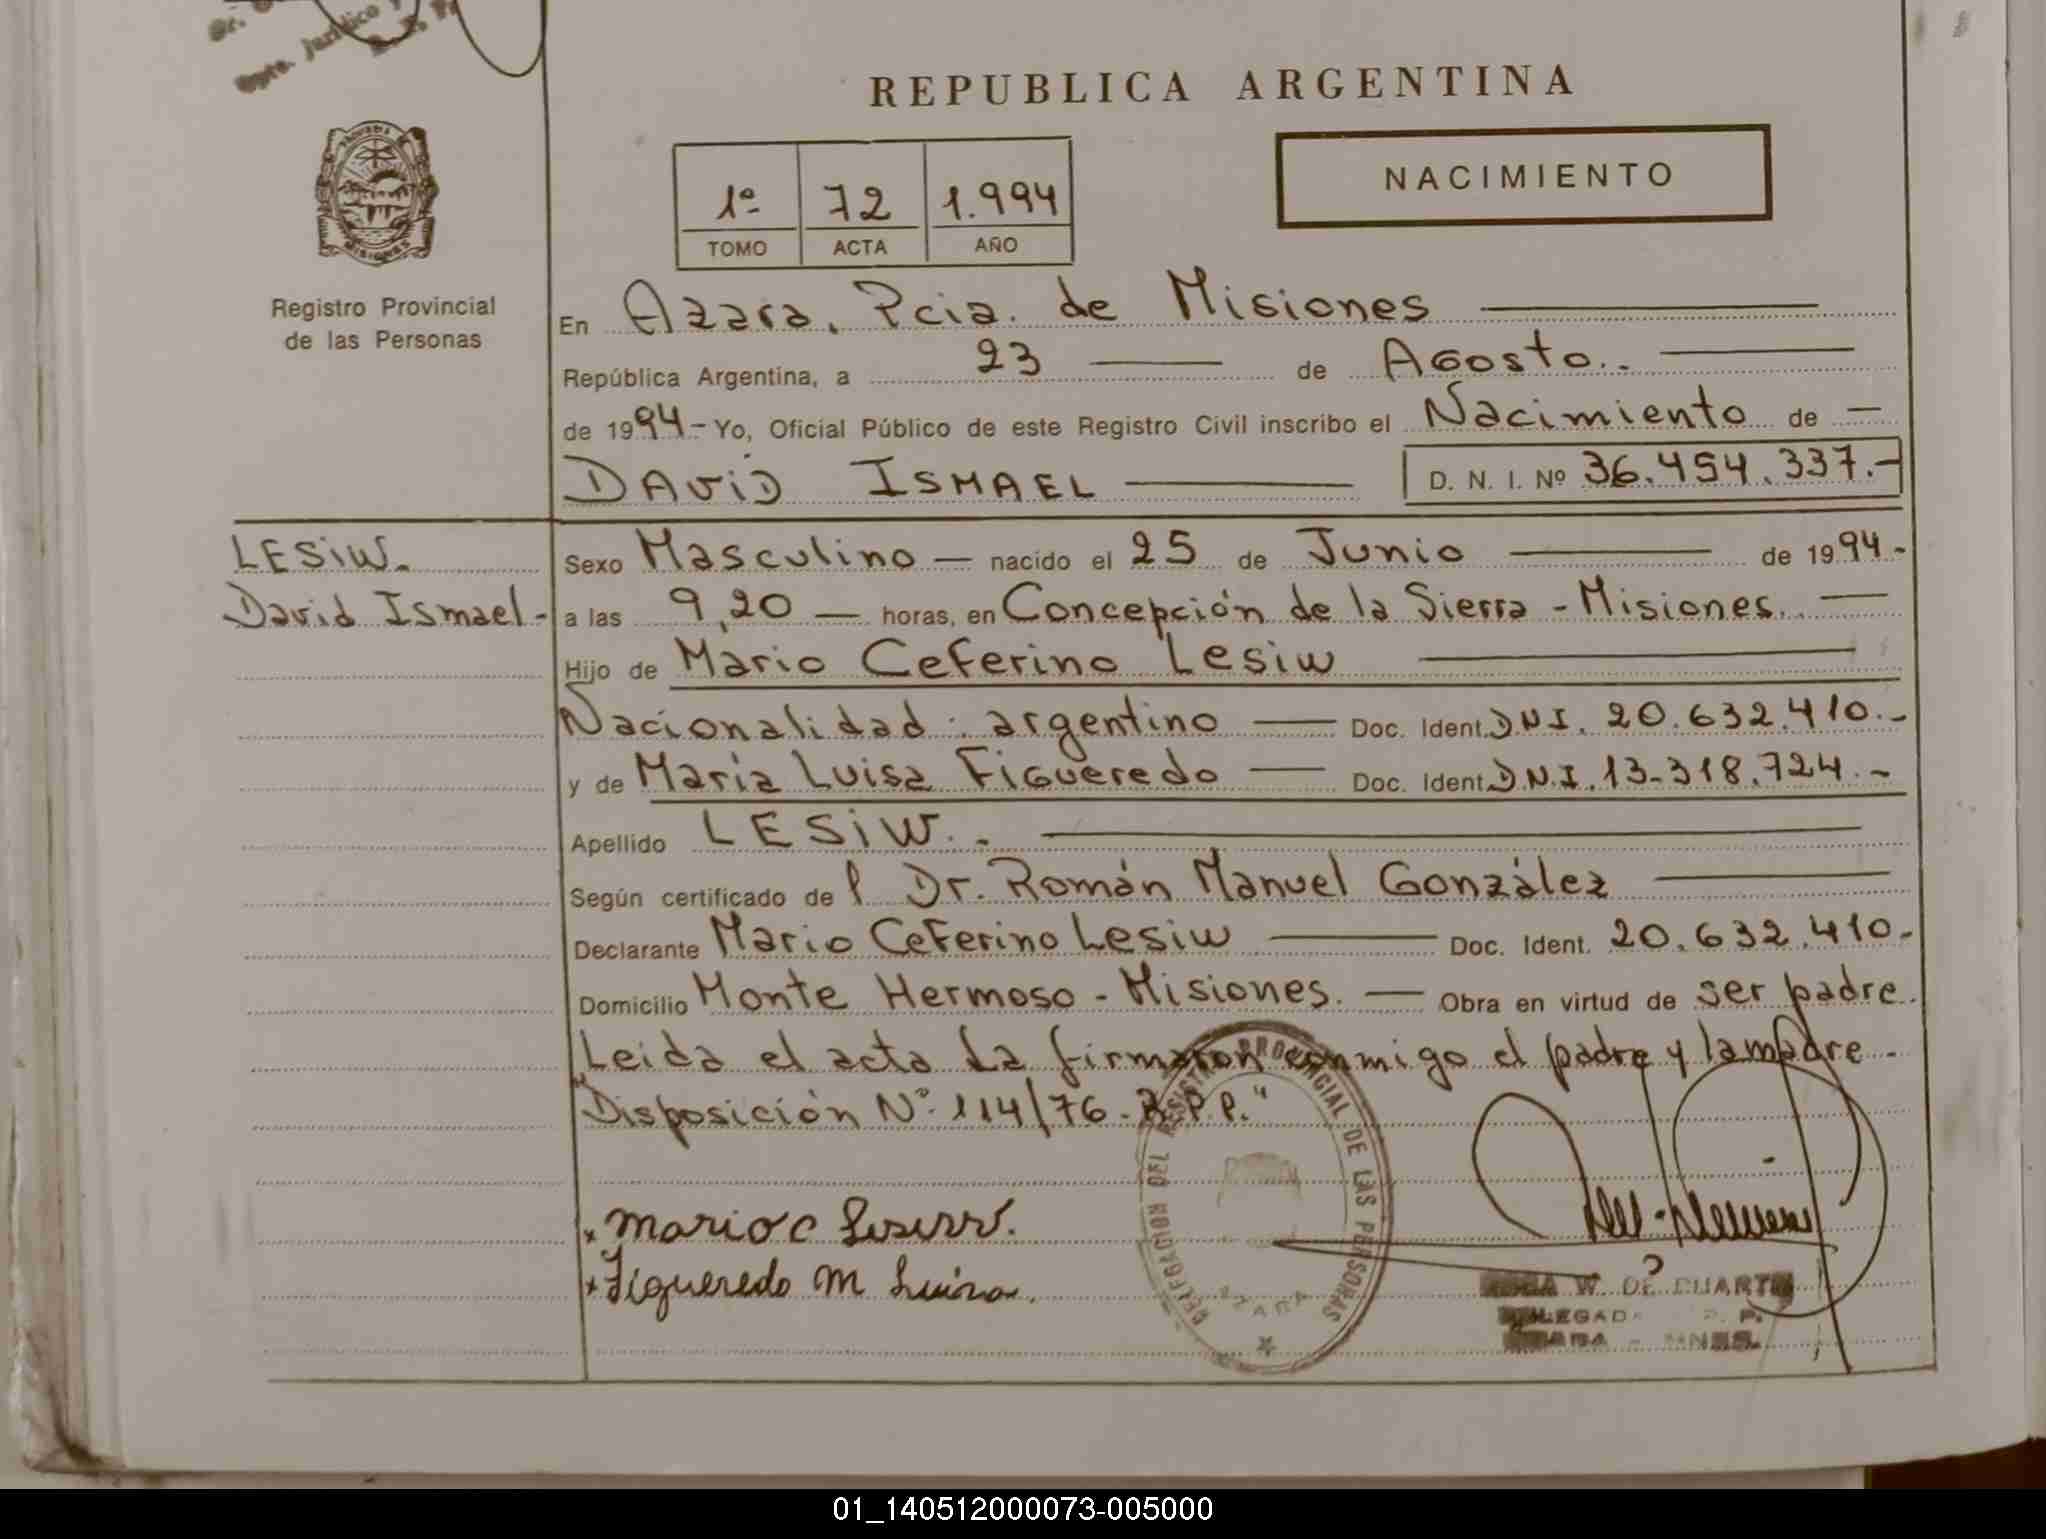 Dpto. Jurídico
REPUBLICA ARGENTINA
NACIMIENTO
1º 72 1.994
TOMO ACTA AÑO
MISIONES
Registro Provincial
de las Personas
En Azara, Pcia. de Misiones
República Argentina, a 23 de Agosto.
de 1994- Yo, Oficial Público de este Registro Civil inscribo el Nacimiento de
DAViD ISMAEL D. N. I. Nº 36.454.337.-
LESiW.
David Ismael-
Sexo Masculino nacido el 25 de Junio de 1994.-
a las 9,20 horas, en Concepción de la Sierra - Misiones.
Hijo de Mario Ceferino Lesiw
Nacionalidad: argentino Doc. Ident. DNI. 20.632.410.-
y de María Luisa Figueredo Doc. Ident. D.N.I. 13-318.724.-
Apellido LESiW.-
Según certificado del Dr. Román Manuel González
Declarante Mario Ceferino Lesiw Doc. Ident. 20.632.410-
Domicilio Monte Hermoso - Misiones. Obra en virtud de ser padre.
Leida el acta La firmaron conmigo el padre y la madre.
"Disposición Nº 114/76- R.P.P."
DELEGACION DEL REGISTRO PROVINCIAL DE LAS PERSONAS
AZARA
x Mario C Lesiw.
x Figueredo M Luisa.
W. DE DUARTE
DELEGADA R. P. P.
AZARA - MNES.
01_140512000073-005000